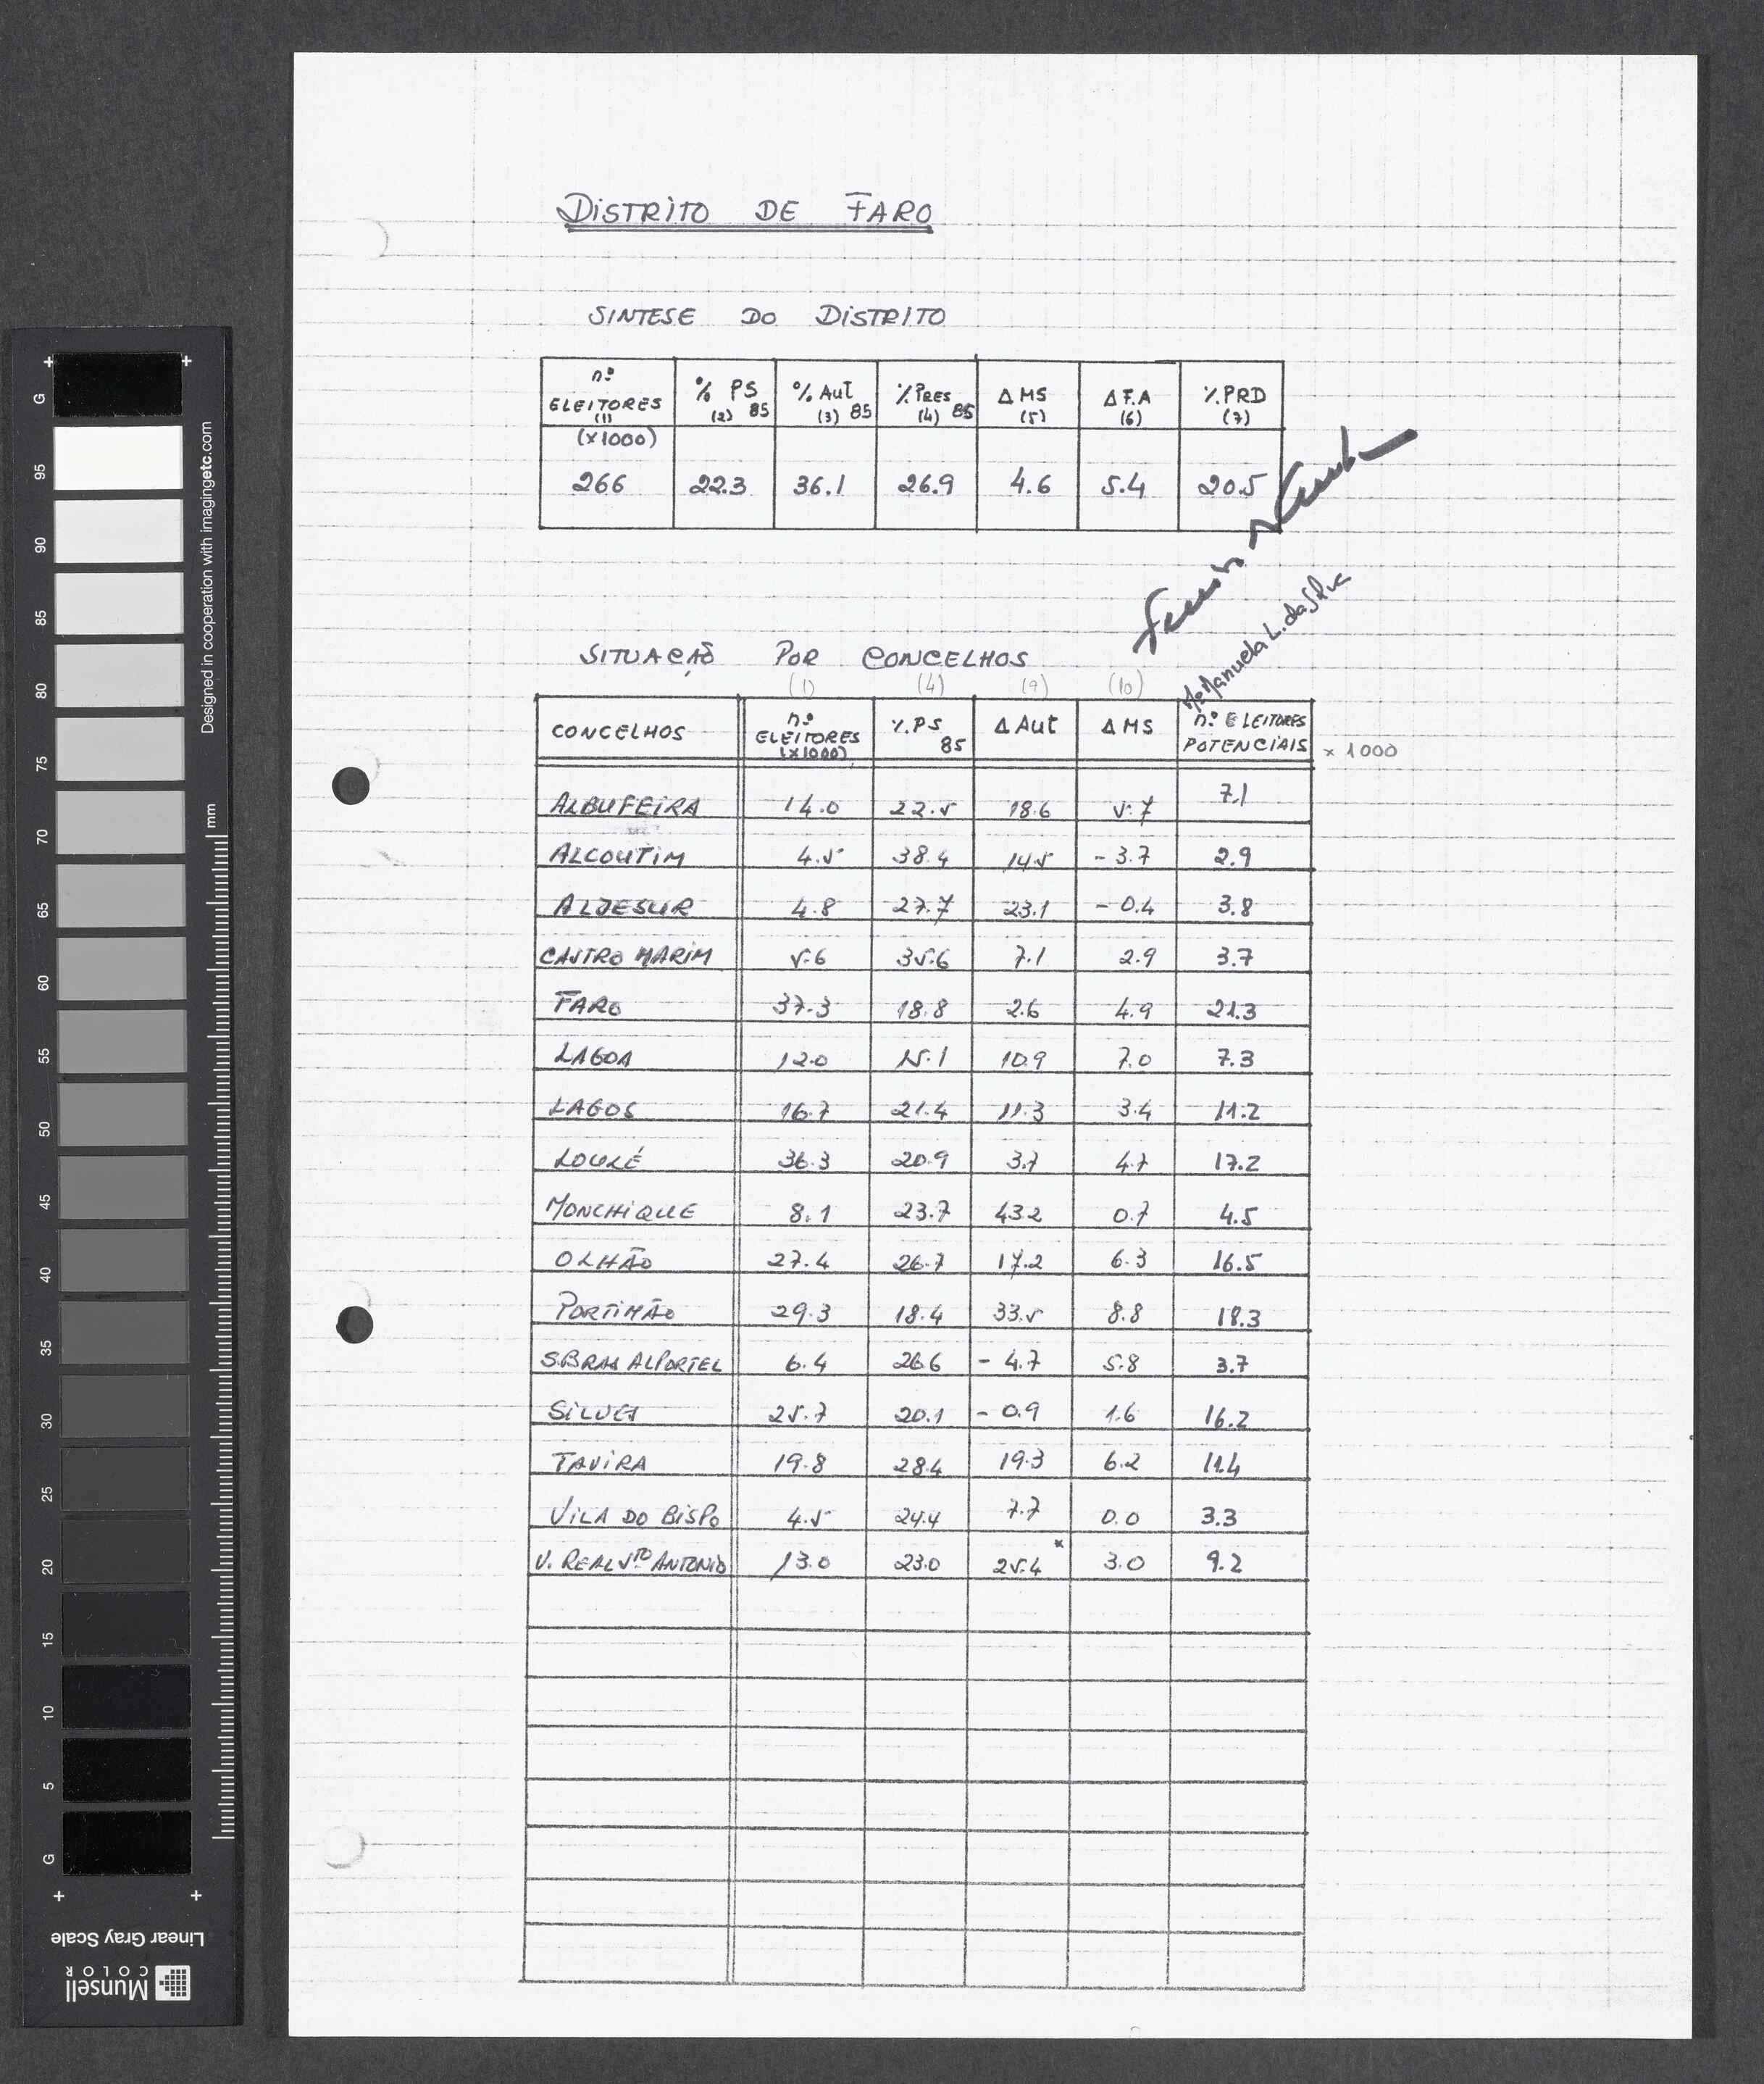 DISTRITO DE FARO
SINTESE DO DISTRITO
nº ELEITORES (1) % PS (2) 85 % Aut (3) 85 % Pres (4) 85 Δ MS (5) Δ F.A (6) % PRD (7)
(x1000)
266 22.3 36.1 26.9 4.6 5.4 20.5
Mª Manuela L. da Silva
SITUAÇÃO POR CONCELHOS
(1) (4) (9) (10)
CONCELHOS nº ELEITORES (x1000) %.PS 85 Δ Aut Δ MS nº ELEITORES POTENCIAIS x 1000
ALBUFEIRA 14.0 22.5 18.6 5.7 7.1
ALCOUTIM 4.5 38.4 14.5 - 3.7 2.9
ALJESUR 4.8 27.7 23.1 - 0.4 3.8
CASTRO MARIM 5.6 35.6 7.1 2.9 3.7
FARO 37.3 18.8 2.6 4.9 21.3
LAGOA 12.0 15.1 10.9 7.0 7.3
LAGOS 16.7 21.4 11.3 3.4 11.2
LOULÉ 36.3 20.9 3.7 4.7 17.2
MONCHIQUE 8.1 23.7 43.2 0.7 4.5
OLHÃO 27.4 26.7 17.2 6.3 16.5
PORTIMÃO 29.3 18.4 33.5 8.8 18.3
S.BRAS ALPORTEL 6.4 26.6 - 4.7 5.8 3.7
SILVES 25.7 20.1 - 0.9 1.6 16.2
TAVIRA 19.8 28.4 19.3 6.2 11.4
VILA DO BISPO 4.5 24.4 7.7 0.0 3.3
V. REAL Sto ANTONIO 13.0 23.0 25.4 * 3.0 9.2
G 95 90 85 80 75 70 65 60 55 50 45 40 35 30 25 20 15 10 5 G
Designed in cooperation with imagingetc.com
mm
Linear Gray Scale
Munsell
COLOR